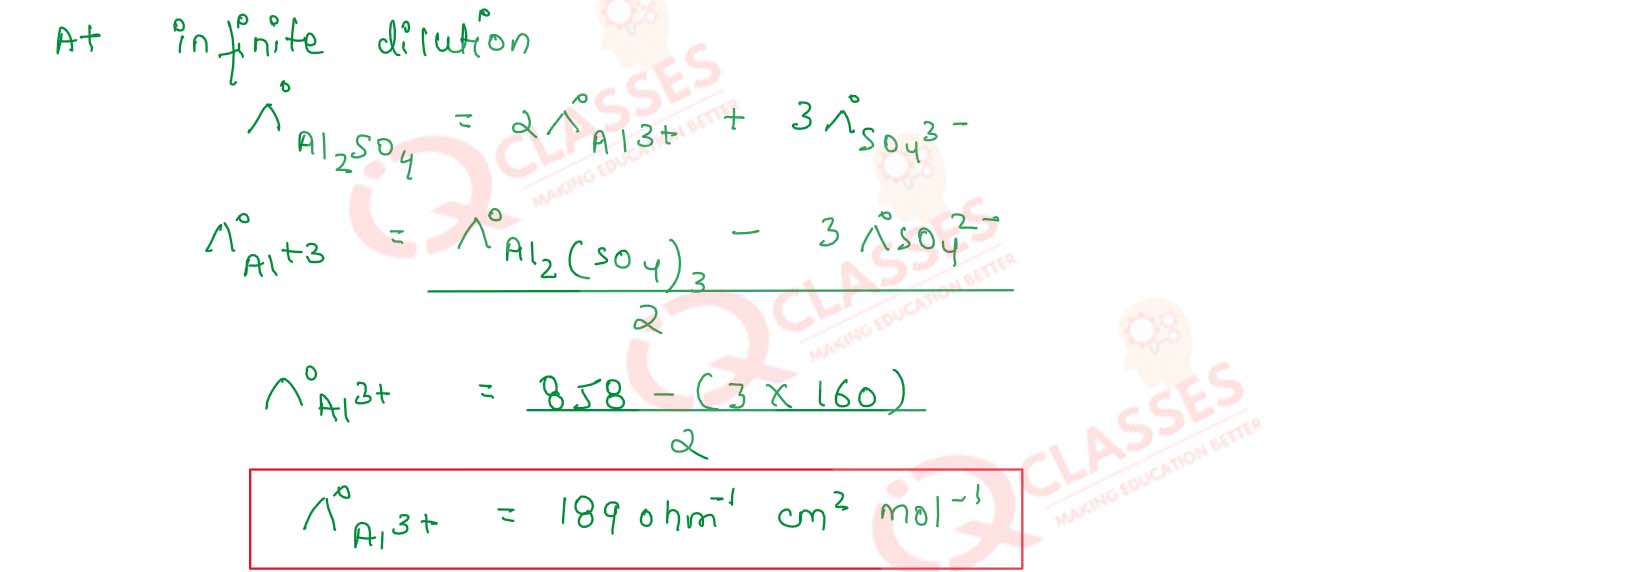 At infinite dilution
Λ°Al₂SO₄ = 2Λ°Al3+ + 3Λ°SO₄³⁻
Λ°Al+3 = Λ°Al₂(SO₄)₃ − 3Λ°SO₄²⁻
2
Λ°Al³⁺ = 858 − (3 × 160)
2
Λ°Al³⁺ = 189 ohm⁻¹ cm² mol⁻¹
IQ CLASSES
MAKING EDUCATION BETTER
IQ CLASSES
MAKING EDUCATION BETTER
IQ CLASSES
MAKING EDUCATION BETTER